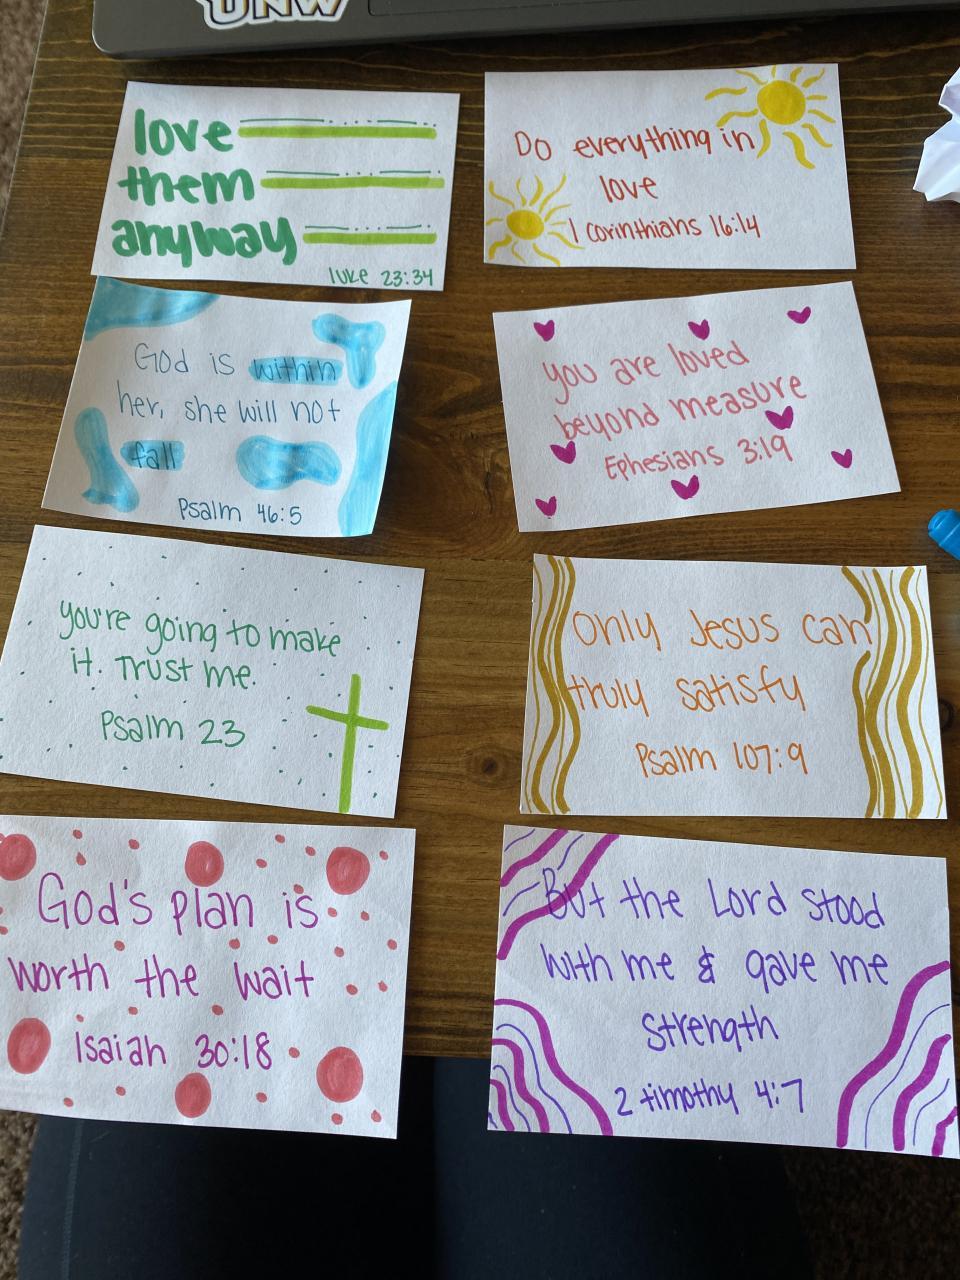 UNW
love
them
anyway
luke 23:34
Do everything in
love
1 corinthians 16:14
God is within
her, she will not
fall
Psalm 46:5
you are loved
beyond measure
Ephesians 3:19
you're going to make
it. Trust me.
Psalm 23
Only Jesus can
truly satisfy
Psalm 107:9
God's plan is
worth the wait
Isaiah 30:18
But the Lord stood
with me & gave me
strength
2 timothy 4:7